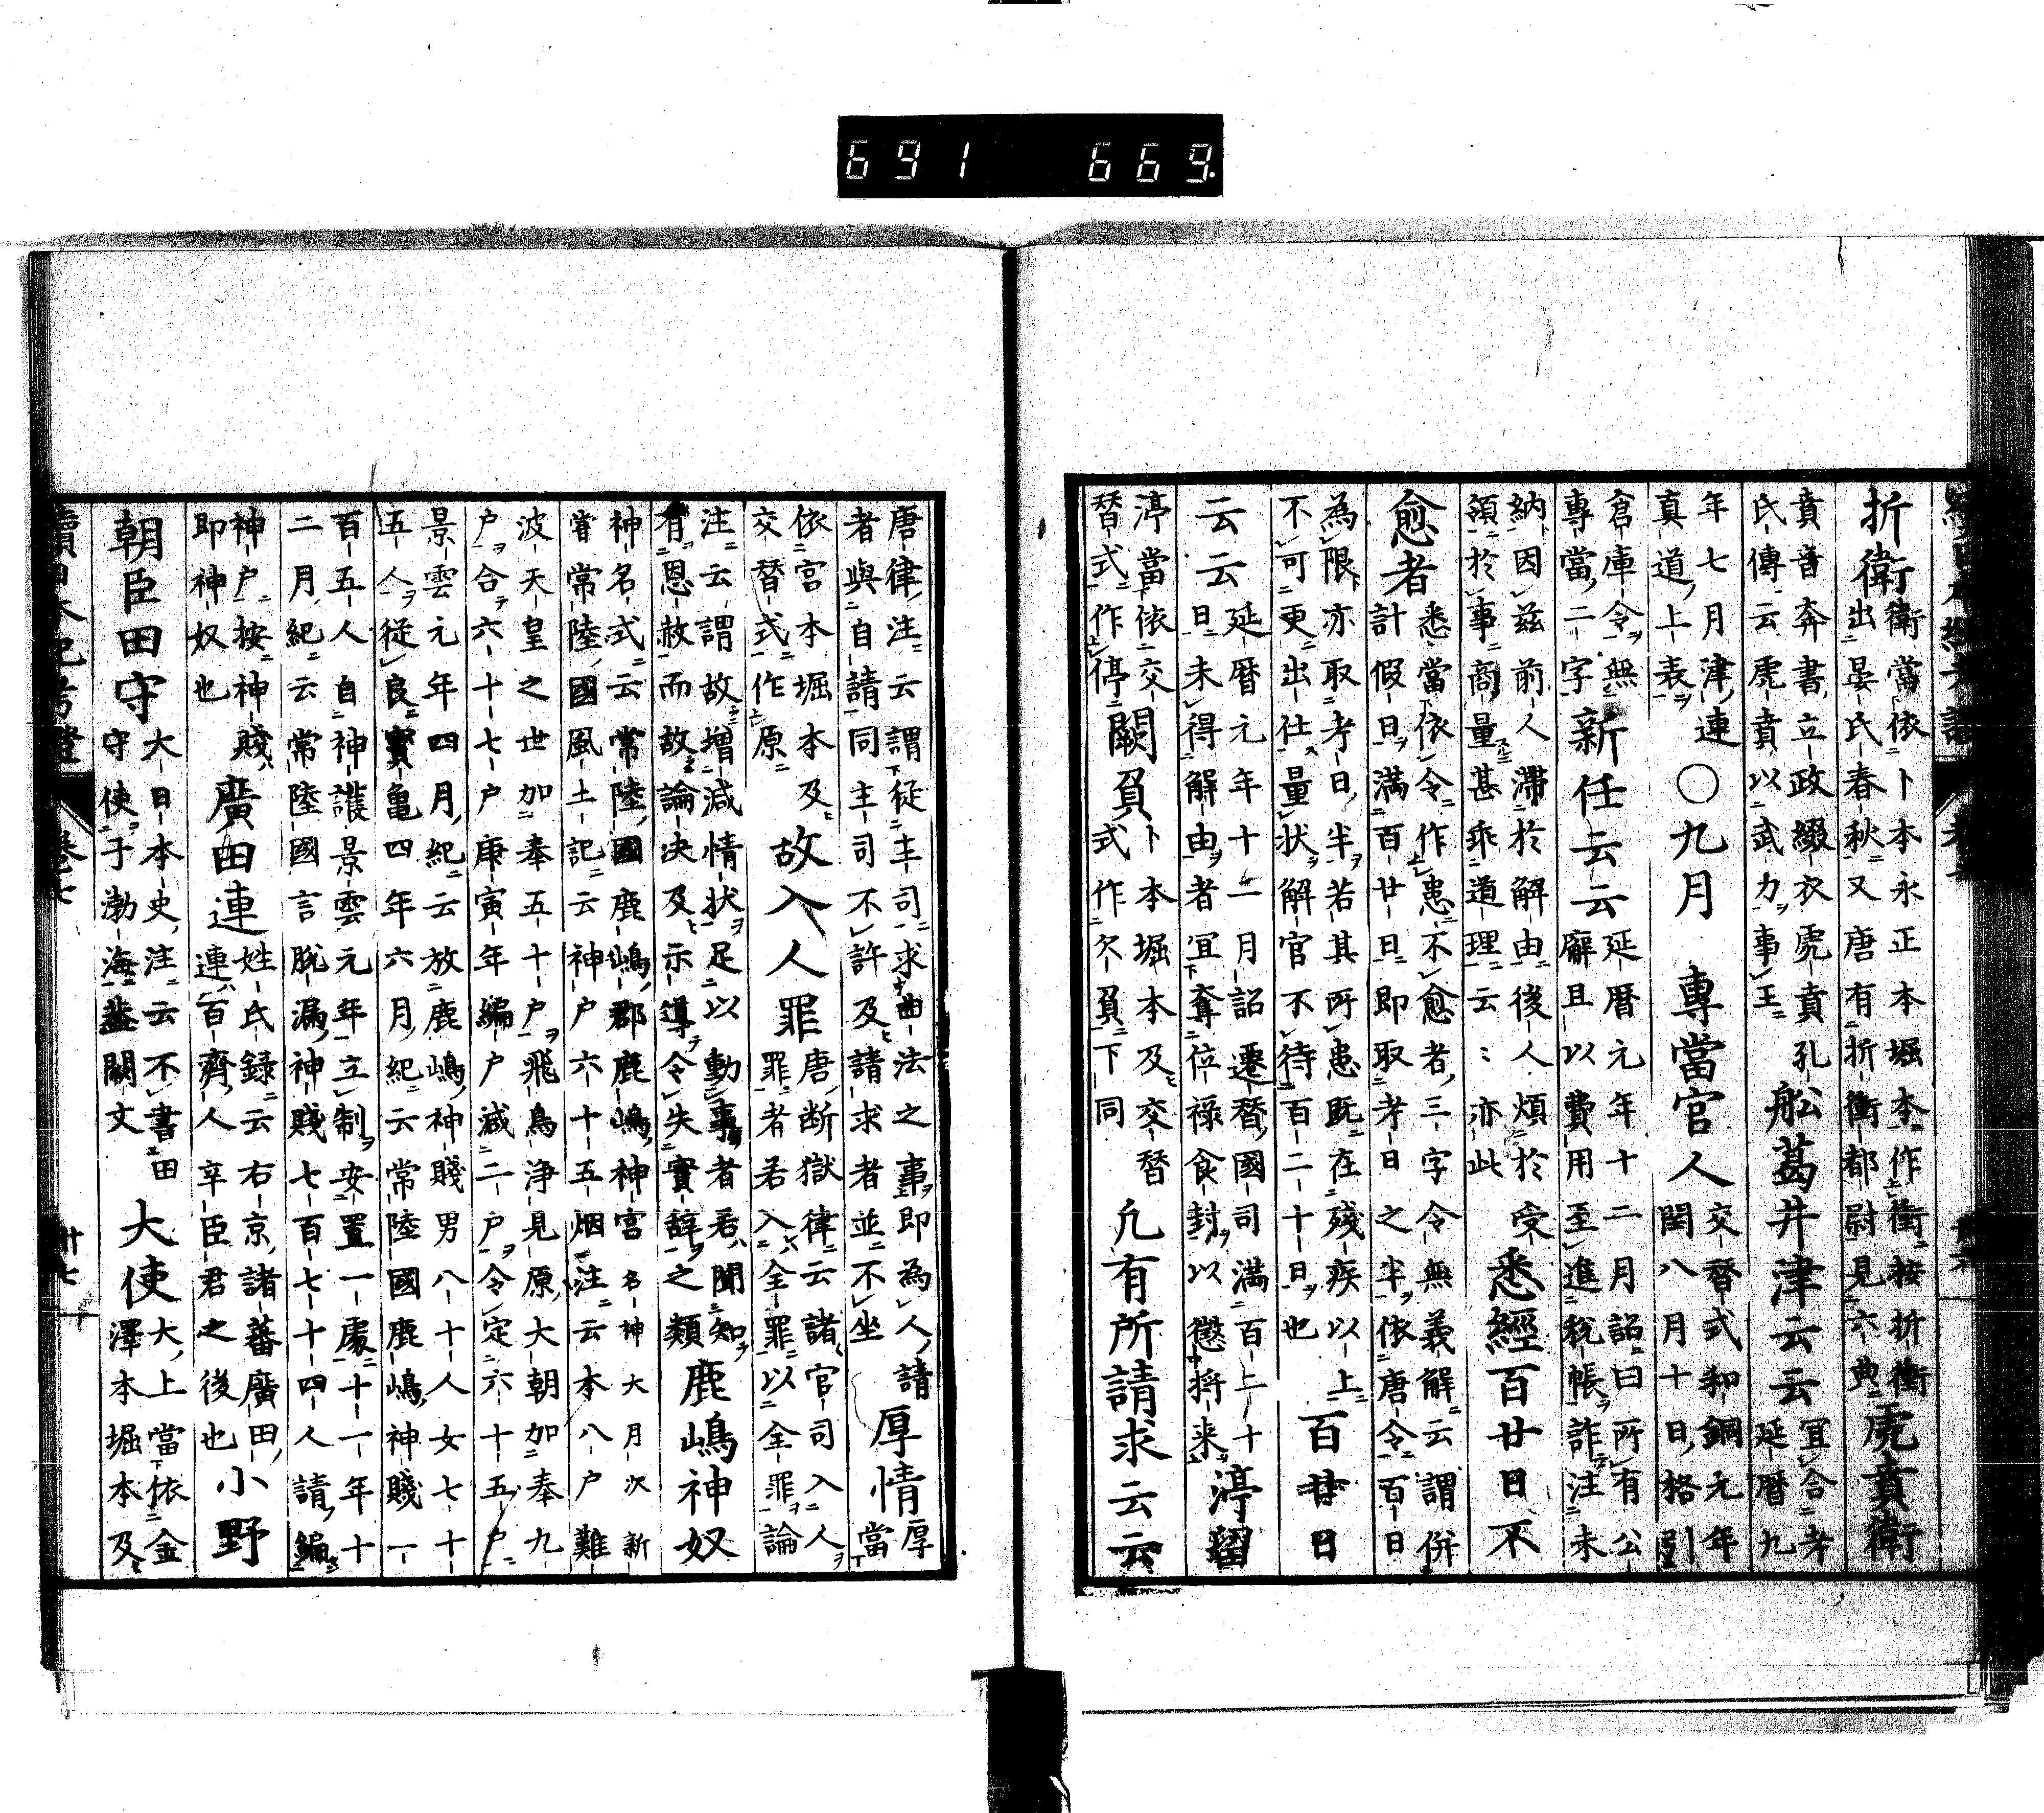 691 669
折衝衝當依卜本永正本堀本作衝按折衝
出晏氏春秋又唐有折衝都尉見六典虎賁衛
賁音奔書立政綴衣虎賁孔
氏傳云虎賁以武力事王船葛井津云云宜合考延暦九
年七月津連
真道上表〇九月 專當官人交替式和銅元年閏八月十日格引
倉庫令無
專當二字新任云云延暦元年十二月詔曰所有公廨且以費用至進税帳詐注未
納因茲前人滯於解由後人煩於受
領於事商量甚乖道理云々亦此悉經百廿日不
愈者悉當依令作患不愈者三字令無義解云謂併
計假日滿百廿日即取考日之半依唐令百日
為限亦取考日半若其所患既在殘疾以上
不可更出仕量状解官不待百二十日也百廿日
云云延暦元年十二月詔遷替國司滿百二十
日未得解由者宜奪位祿食封以懲將来渟留
渟當依交
替式作停闕負卜本堀本及交替式作欠負下同凡有所請求云云
唐律注云謂從主司求曲法之事即為人請
者與自請同主司不許及請求者並不坐厚情厚當
依宮本堀本及
交替式作原故入人罪唐断獄律云諸官司入人罪者若入全罪以全罪論
注云謂故増減情状足以動事者若聞知
有恩赦而故論决及示導令失實辞之類鹿嶋神奴
神名式云常陸國鹿嶋郡鹿嶋神宮名神大月次新
甞常陸國風土記云神戸六十五烟注云本八戸難
波天皇之世加奉五十戸飛鳥浄見原大朝加奉九
戸合六十七戸庚寅年編戸减二戸令定六十五戸
景雲元年四月紀云放鹿嶋神賤男八十人女七十
五人從良寳亀四年六月紀云常陸國鹿嶋神賤一
百五人自神護景雲元年立制安置一處十一年十
二月紀云常陸國言脱漏神賤七百七十四人請編
神戸按神賤
即神奴也廣田連姓氏録云右京諸蕃廣田連百濟人辛臣君之後也小野
朝臣田守大日本史注云不書田守使于渤海蓋闕文大使大上當依金澤本堀本及
續日本紀考證 卷七 廿七